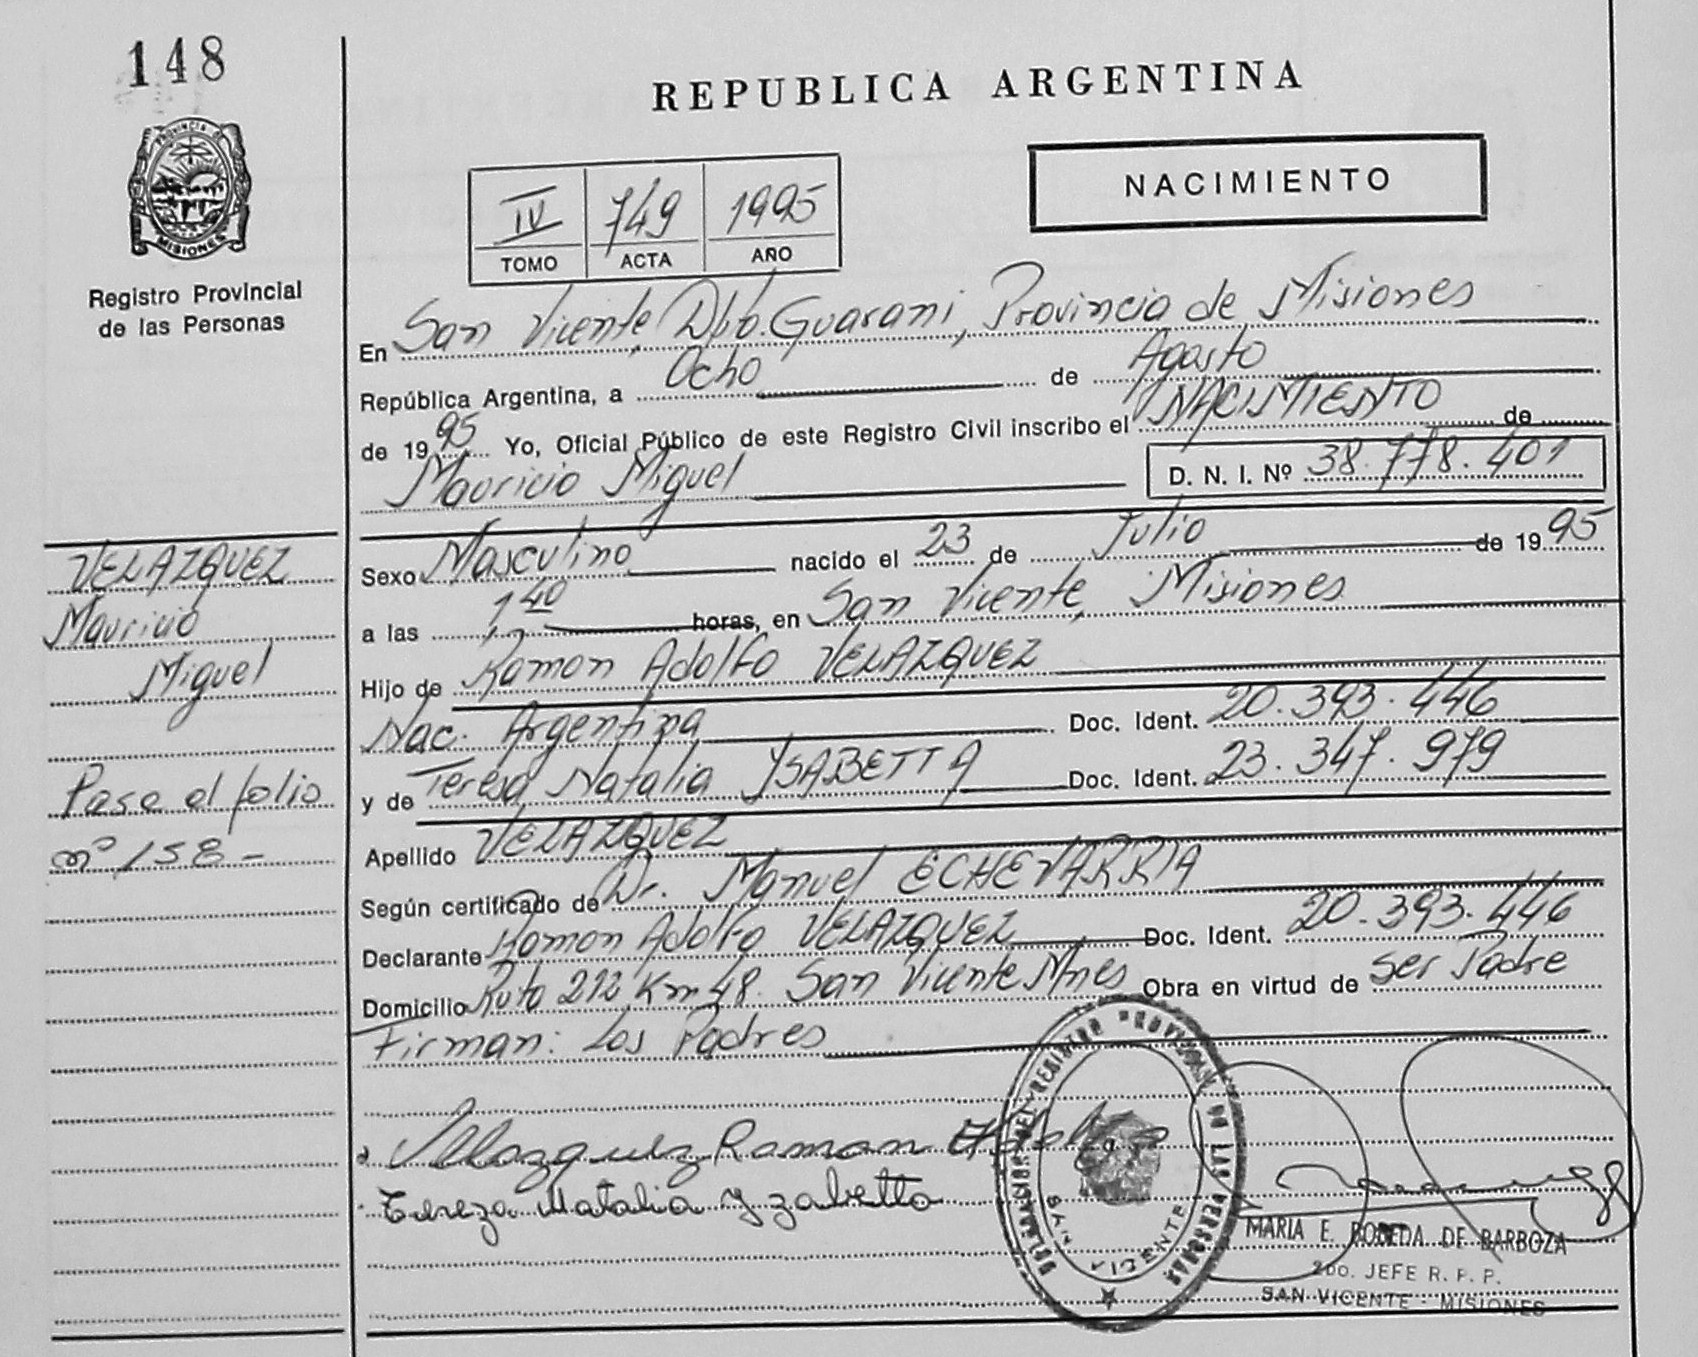 148
REPUBLICA ARGENTINA
PROVINCIA DE
MISIONES
Registro Provincial
de las Personas
NACIMIENTO
IV 749 1995
TOMO ACTA AÑO
En San Vicente, Dpto. Guarani, Provincia de Misiones
República Argentina, a Ocho de Agosto
de 1995 Yo, Oficial Público de este Registro Civil inscribo el NACIMIENTO de
Mauricio Miguel D. N. I. Nº 38.778.401
VELAZQUEZ
Mauricio
Miguel
Pase al folio
nº 158 -
Sexo Masculino nacido el 23 de Julio de 1995
a las 1,40 horas, en San Vicente, Misiones
Hijo de Ramon Adolfo VELAZQUEZ
Nac. Argentina Doc. Ident. 20.393.446
y de Teresa Natalia YSABETTA Doc. Ident. 23.347.979
Apellido VELAZQUEZ
Según certificado de Dr. Manuel ECHEVARRIA
Declarante Ramon Adolfo VELAZQUEZ Doc. Ident. 20.393.446
Domicilio Ruta 212 Km 48. San Vicente Mnes Obra en virtud de ser Padre
Firman: Los Padres
Velazquez Ramon
Tereza Natalia Yzabetta
DELEGACION DEL REGISTRO PROVINCIAL DE LAS PERSONAS
SAN VICENTE
MARIA E. DE BARBOZA
2do. JEFE R. P. P.
SAN VICENTE - MISIONES